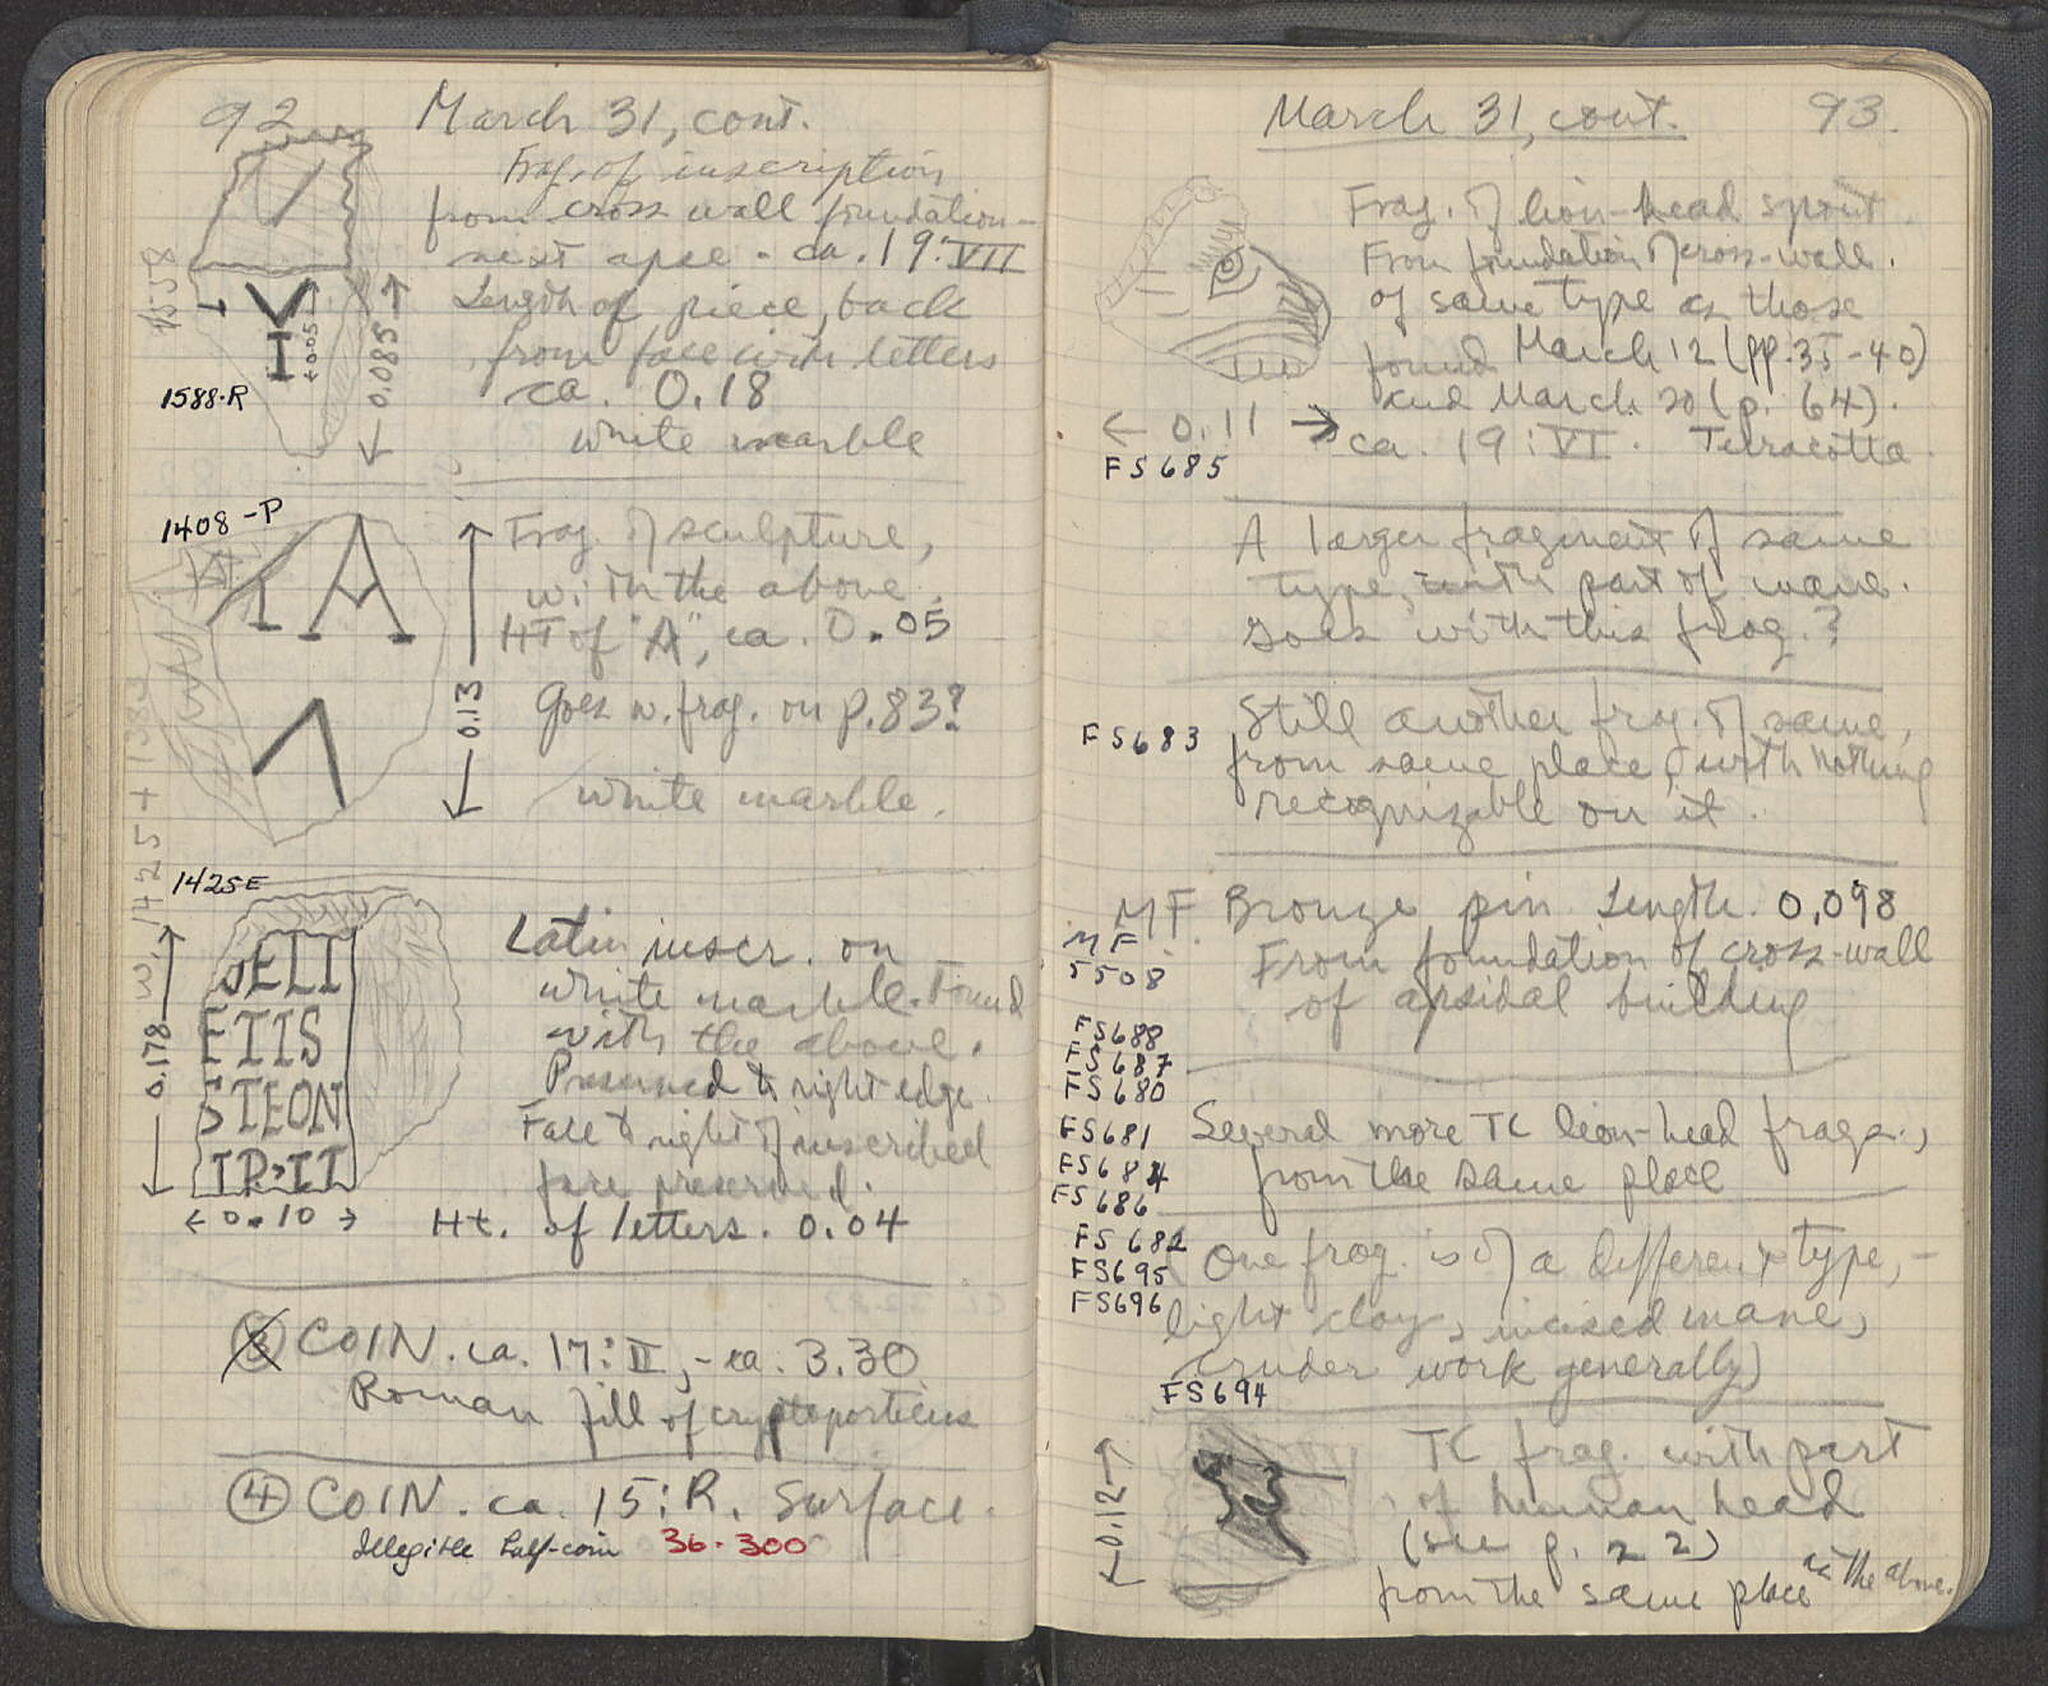 92 March 31, cont.
Frag. of inscription
from cross wall foundation -
next apse - ca. 19:VII
Length of piece, back
from face with letters
ca. 0.18
white marble
V
I
0.05
0.085
1588-R
1408-P
IA
Λ
0.13
Frag. of sculpture,
with the above.
HT of "A", ca. 0.05
Goes w. frag. on p. 83?
white marble.
W. 1425 +
1425E
ELI
ETIS
STEON
IP›II
0.178
← 0.10 →
Latin inscr. on
white marble. Found
with the above.
Preserved to right edge.
Face to right of inscribed
face preserved.
Ht. of letters. 0.04
3 COIN. ca. 17:II, - ca. 3.30
Roman fill of cryptoporticus
4 COIN. ca. 15:R. Surface.
Illegible half-coin 36.300
March 31, cont. 93.
Frag. of lion-head spout
From foundation of cross-wall.
of same type as those
found March 12 (pp. 35-40)
and March 20 (p. 64).
ca. 19:VI. Terracotta
← 0.11 →
FS685
A larger fragment of same
type, with part of mane.
Goes with this frag.?
FS683
Still another frag. of same,
from same place, with nothing
recognizable on it.
MF Bronze pin Length. 0.098
MF
5508
From foundation of cross-wall
of apsidal building
FS688
FS687
FS680
FS681
FS684
FS686
Several more TC lion-head frags.,
from the same place
FS682
FS695
FS696
(One frag. is of a different type, -
light clay, incised mane,
cruder work generally)
FS694
0.12
TC frag. with part
of human head
(see p. 22)
from the same place as the above.